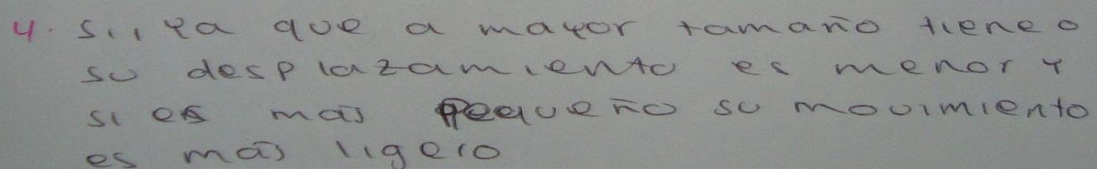 4. Si, ya que a mayor tamaño tiene o
su desplazamiento es menor y
si es más pequeño su movimiento
es más ligero